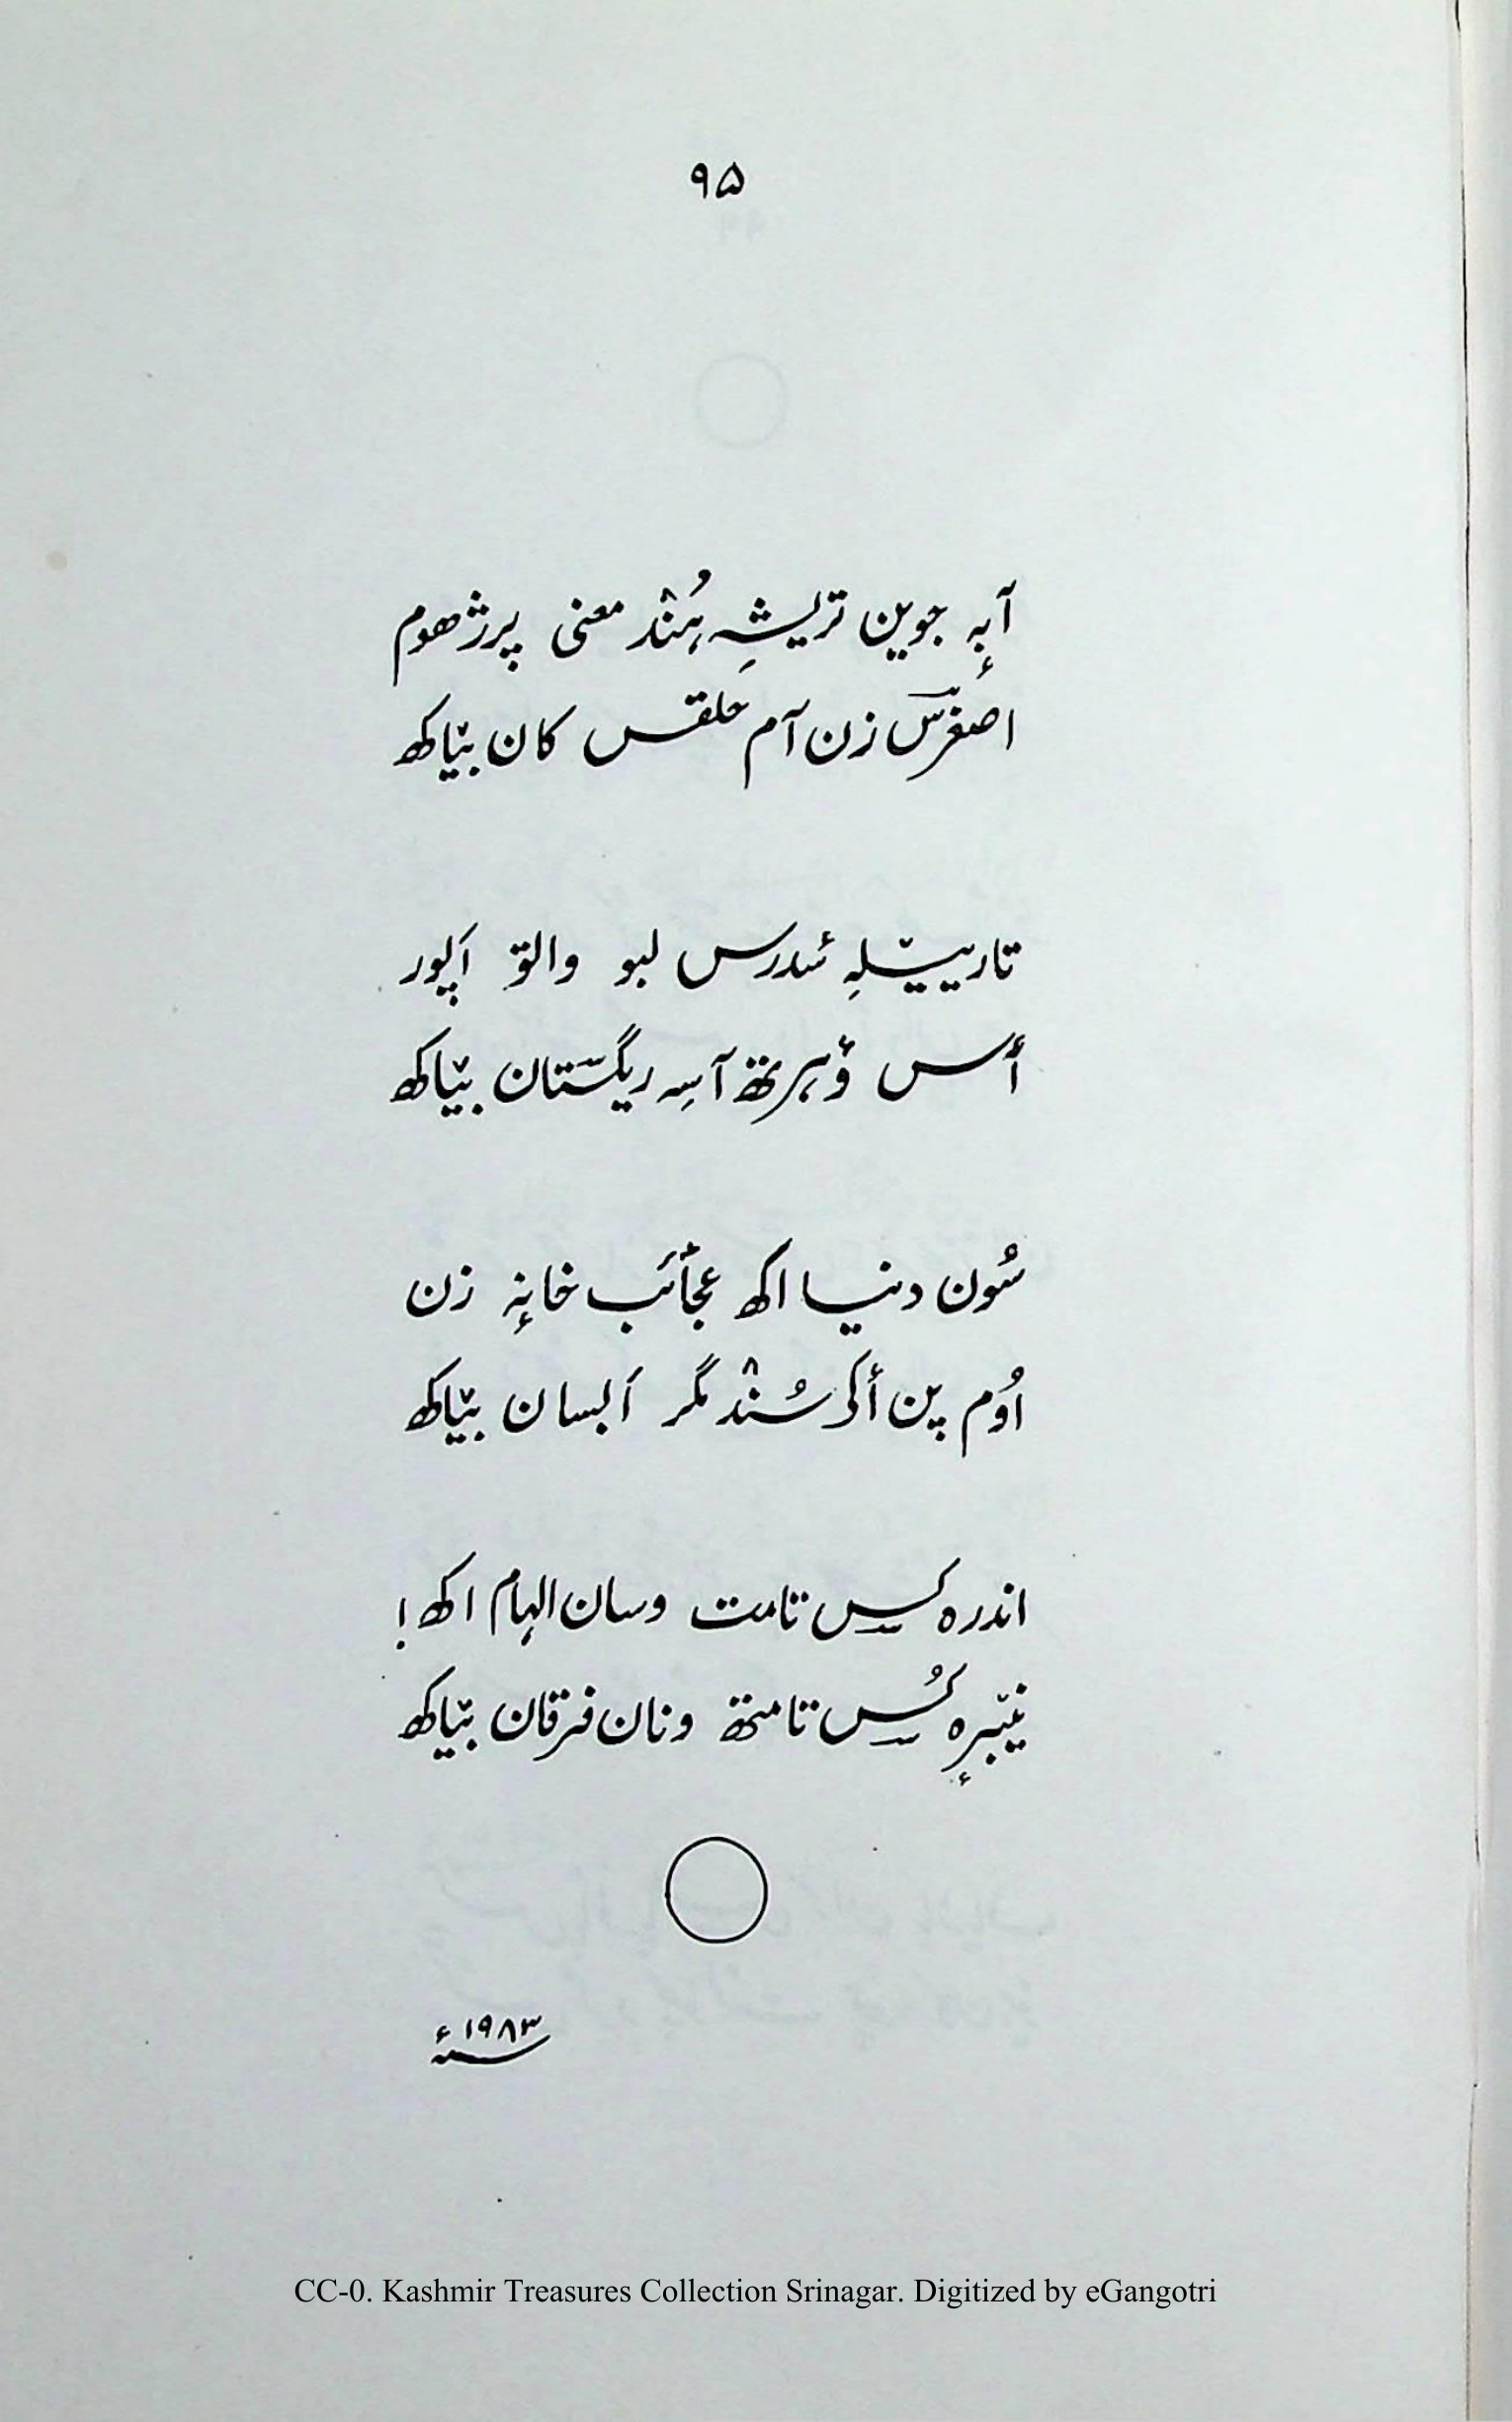 ۹۵
آبہٕ جوین تریشہِ ہُنٛد معنی پرژھوم
اصغرسٕ زن آم حلقس کان بیٛاکھ
تار ییٚلہِ سٔدرس لبو والوٚ اَپور
أس وٕہرتھ آسہِ ریگستان بیٛاکھ
سُون دنیا اکھ عجأئب خانہٕ زن
اوُم پن أکۍ سُنٛد مگر اَلسان بیٛاکھ
اندرہ کس تامت وسان الہام اکھ!
نیٚبرہٕ کُس تامتھ ونان فرقان بیٛاکھ
۱۹۸۳ء
CC-0. Kashmir Treasures Collection Srinagar. Digitized by eGangotri